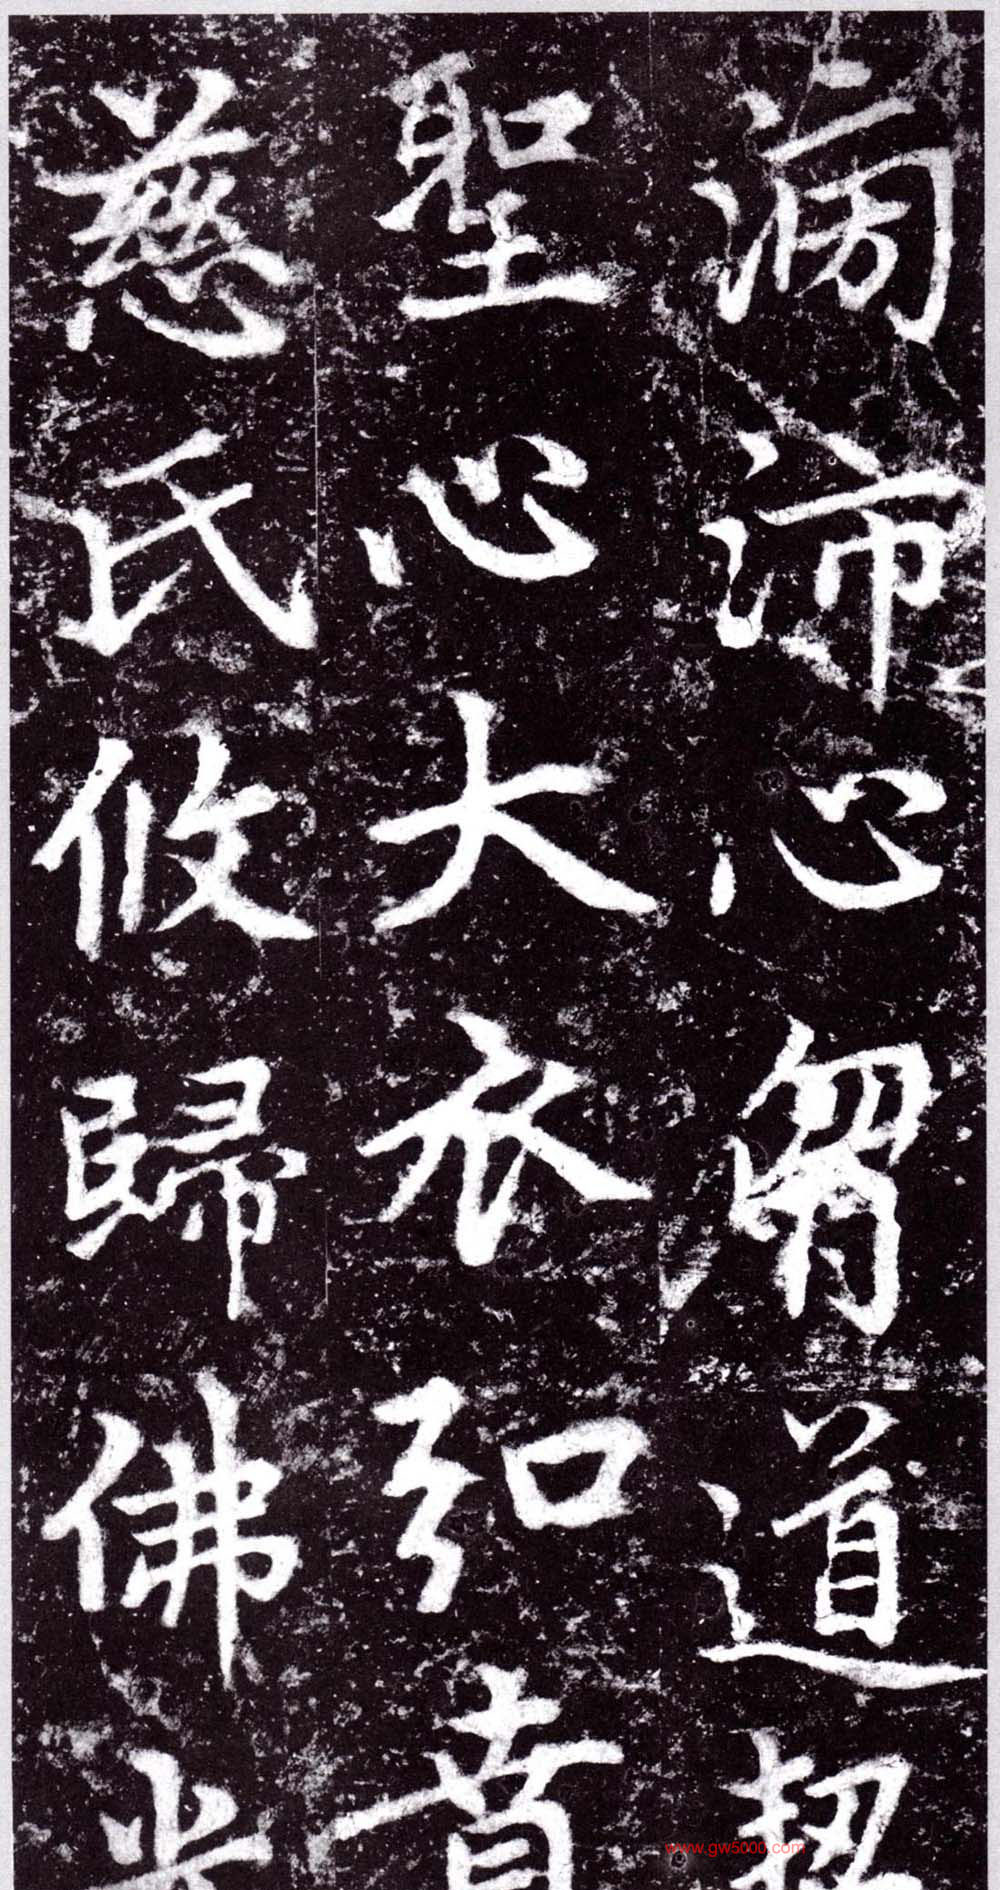 滂沛心胷道
聖心大衣弘
慈氏攸歸佛
www.gw5000.com